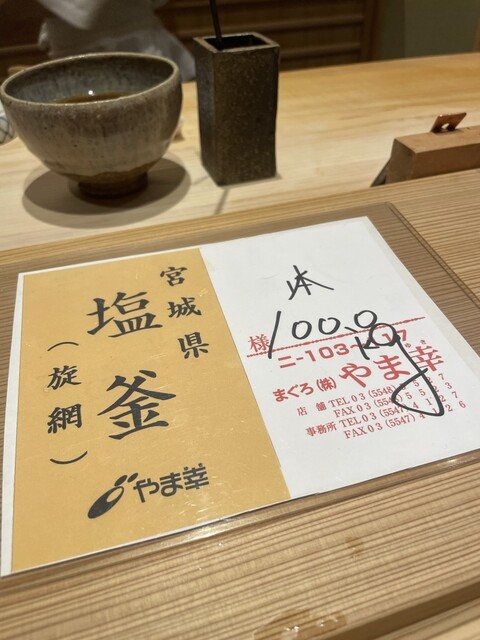 宮城県
塩釜
(旋網)
やま幸
本
100.0kg
様
ニ-103~17
まぐろ(株)やま幸
ゆき
店舗 TEL 03(5548)5
FAX 03(554
事務所 TEL 03(5547)4
FAX 03(5547)4